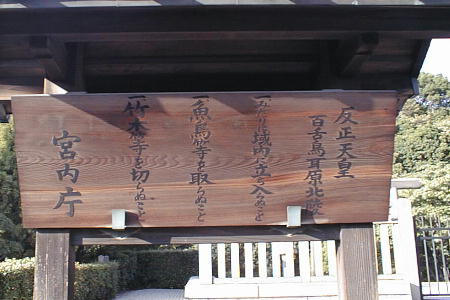 反正天皇
百舌鳥耳原北陵
一みだりに域内に立ち入らぬこと
一魚鳥等を取らぬこと
一竹木等を切らぬこと
宮内庁